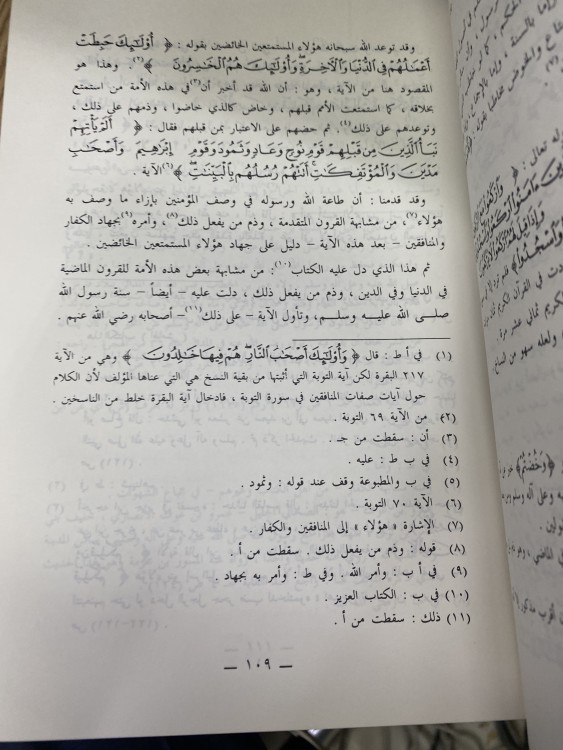 وقد توعد الله سبحانه هؤلاء المستمتعين الخائضين بقوله : ﴿ أُوْلَٰٓئِكَ حَبِطَتْ
أَعْمَٰلُهُمْ فِي ٱلدُّنْيَا وَٱلْأٓخِرَةِ وَأُوْلَٰٓئِكَ هُمُ ٱلْخَٰسِرُونَ ﴾(٢). وهذا هو
المقصود هنا من الآية ، وهو : أن الله قد أخبر أن(٣) في هذه الأمة من استمتع
بخلاقه ، كما استمتعت الأمم قبلهم ، وخاض كالذي خاضوا ، وذمهم على ذلك ،
وتوعدهم على ذلك(٤). ثم حضهم على الاعتبار بمن قبلهم فقال : ﴿ أَلَمْ يَأْتِهِمْ
نَبَأُ ٱلَّذِينَ مِن قَبْلِهِمْ قَوْمِ نُوحٍ وَعَادٍ وَثَمُودَ وَقَوْمِ إِبْرَٰهِيمَ وَأَصْحَٰبِ
مَدْيَنَ وَٱلْمُؤْتَفِكَٰتِ أَتَتْهُمْ رُسُلُهُم بِٱلْبَيِّنَٰتِ ﴾(٦) الآية .
وقد قدمنا : أن طاعة الله ورسوله في وصف المؤمنين بإزاء ما وصف به
هؤلاء(٧)، من مشابهة القرون المتقدمة ، وذم من يفعل ذلك(٨)، وأمره(٩) بجهاد الكفار
والمنافقين – بعد هذه الآية – دليل على جهاد هؤلاء المستمتعين الخائضين .
ثم هذا الذي دل عليه الكتاب(١٠): من مشابهة بعض هذه الأمة للقرون الماضية
في الدنيا وفي الدين ، وذم من يفعل ذلك ، دلت عليه – أيضاً – سنة رسول الله
صلى الله عليه وسلم، وتأول الآية – على ذلك(١١) – أصحابه رضي الله عنهم .
(١) في أ ط : قال ﴿ وَأُوْلَٰٓئِكَ أَصْحَٰبُ ٱلنَّارِ هُمْ فِيهَا خَٰلِدُونَ ﴾ وهي من الآية
٢١٧ البقرة لكن آية التوبة التي أثبتها من بقية النسخ هي التي عناها المؤلف لأن الكلام
حول آيات صفات المنافقين في سورة التوبة ، فادخال آية البقرة خلط من الناسخين .
(٢) من الآية ٦٩ التوبة .
(٣) أن : سقطت من جـ .
(٤) في ب ط : عليه .
(٥) في ب والمطبوعة وقف عند قوله : وثمود .
(٦) الآية ٧٠ التوبة .
(٧) الإشارة « هؤلاء » إلى المنافقين والكفار .
(٨) قوله : وذم من يفعل ذلك . سقطت من أ .
(٩) في أ ب : وأمر الله . وفي ط : وأمر به بجهاد .
(١٠) في ب : الكتاب العزيز .
(١١) ذلك : سقطت من أ .
— ١٠٩ —